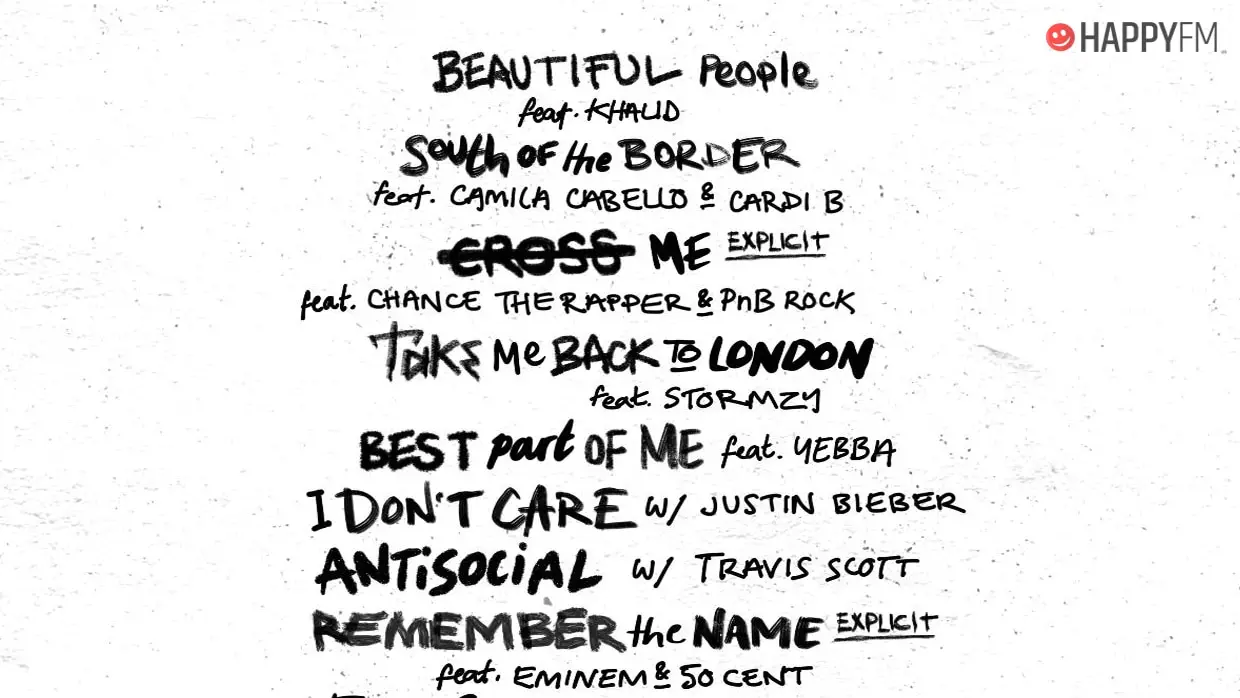 HAPPYFM
BEAUTIFUL People
feat. KHALID
South OF the BORDER
feat. CAMILA CABELLO & CARDI B
CROSS ME EXPLICIT
feat. CHANCE THE RAPPER & PnB ROCK
Take Me BACK TO LONDON
feat. STORMZY
BEST part OF ME feat. YEBBA
I DON'T CARE W/ JUSTIN BIEBER
ANTiSOCiAL W/ TRAVIS SCOTT
REMEMBER the NAME EXPLICIT
feat. EMINEM & 50 CENT